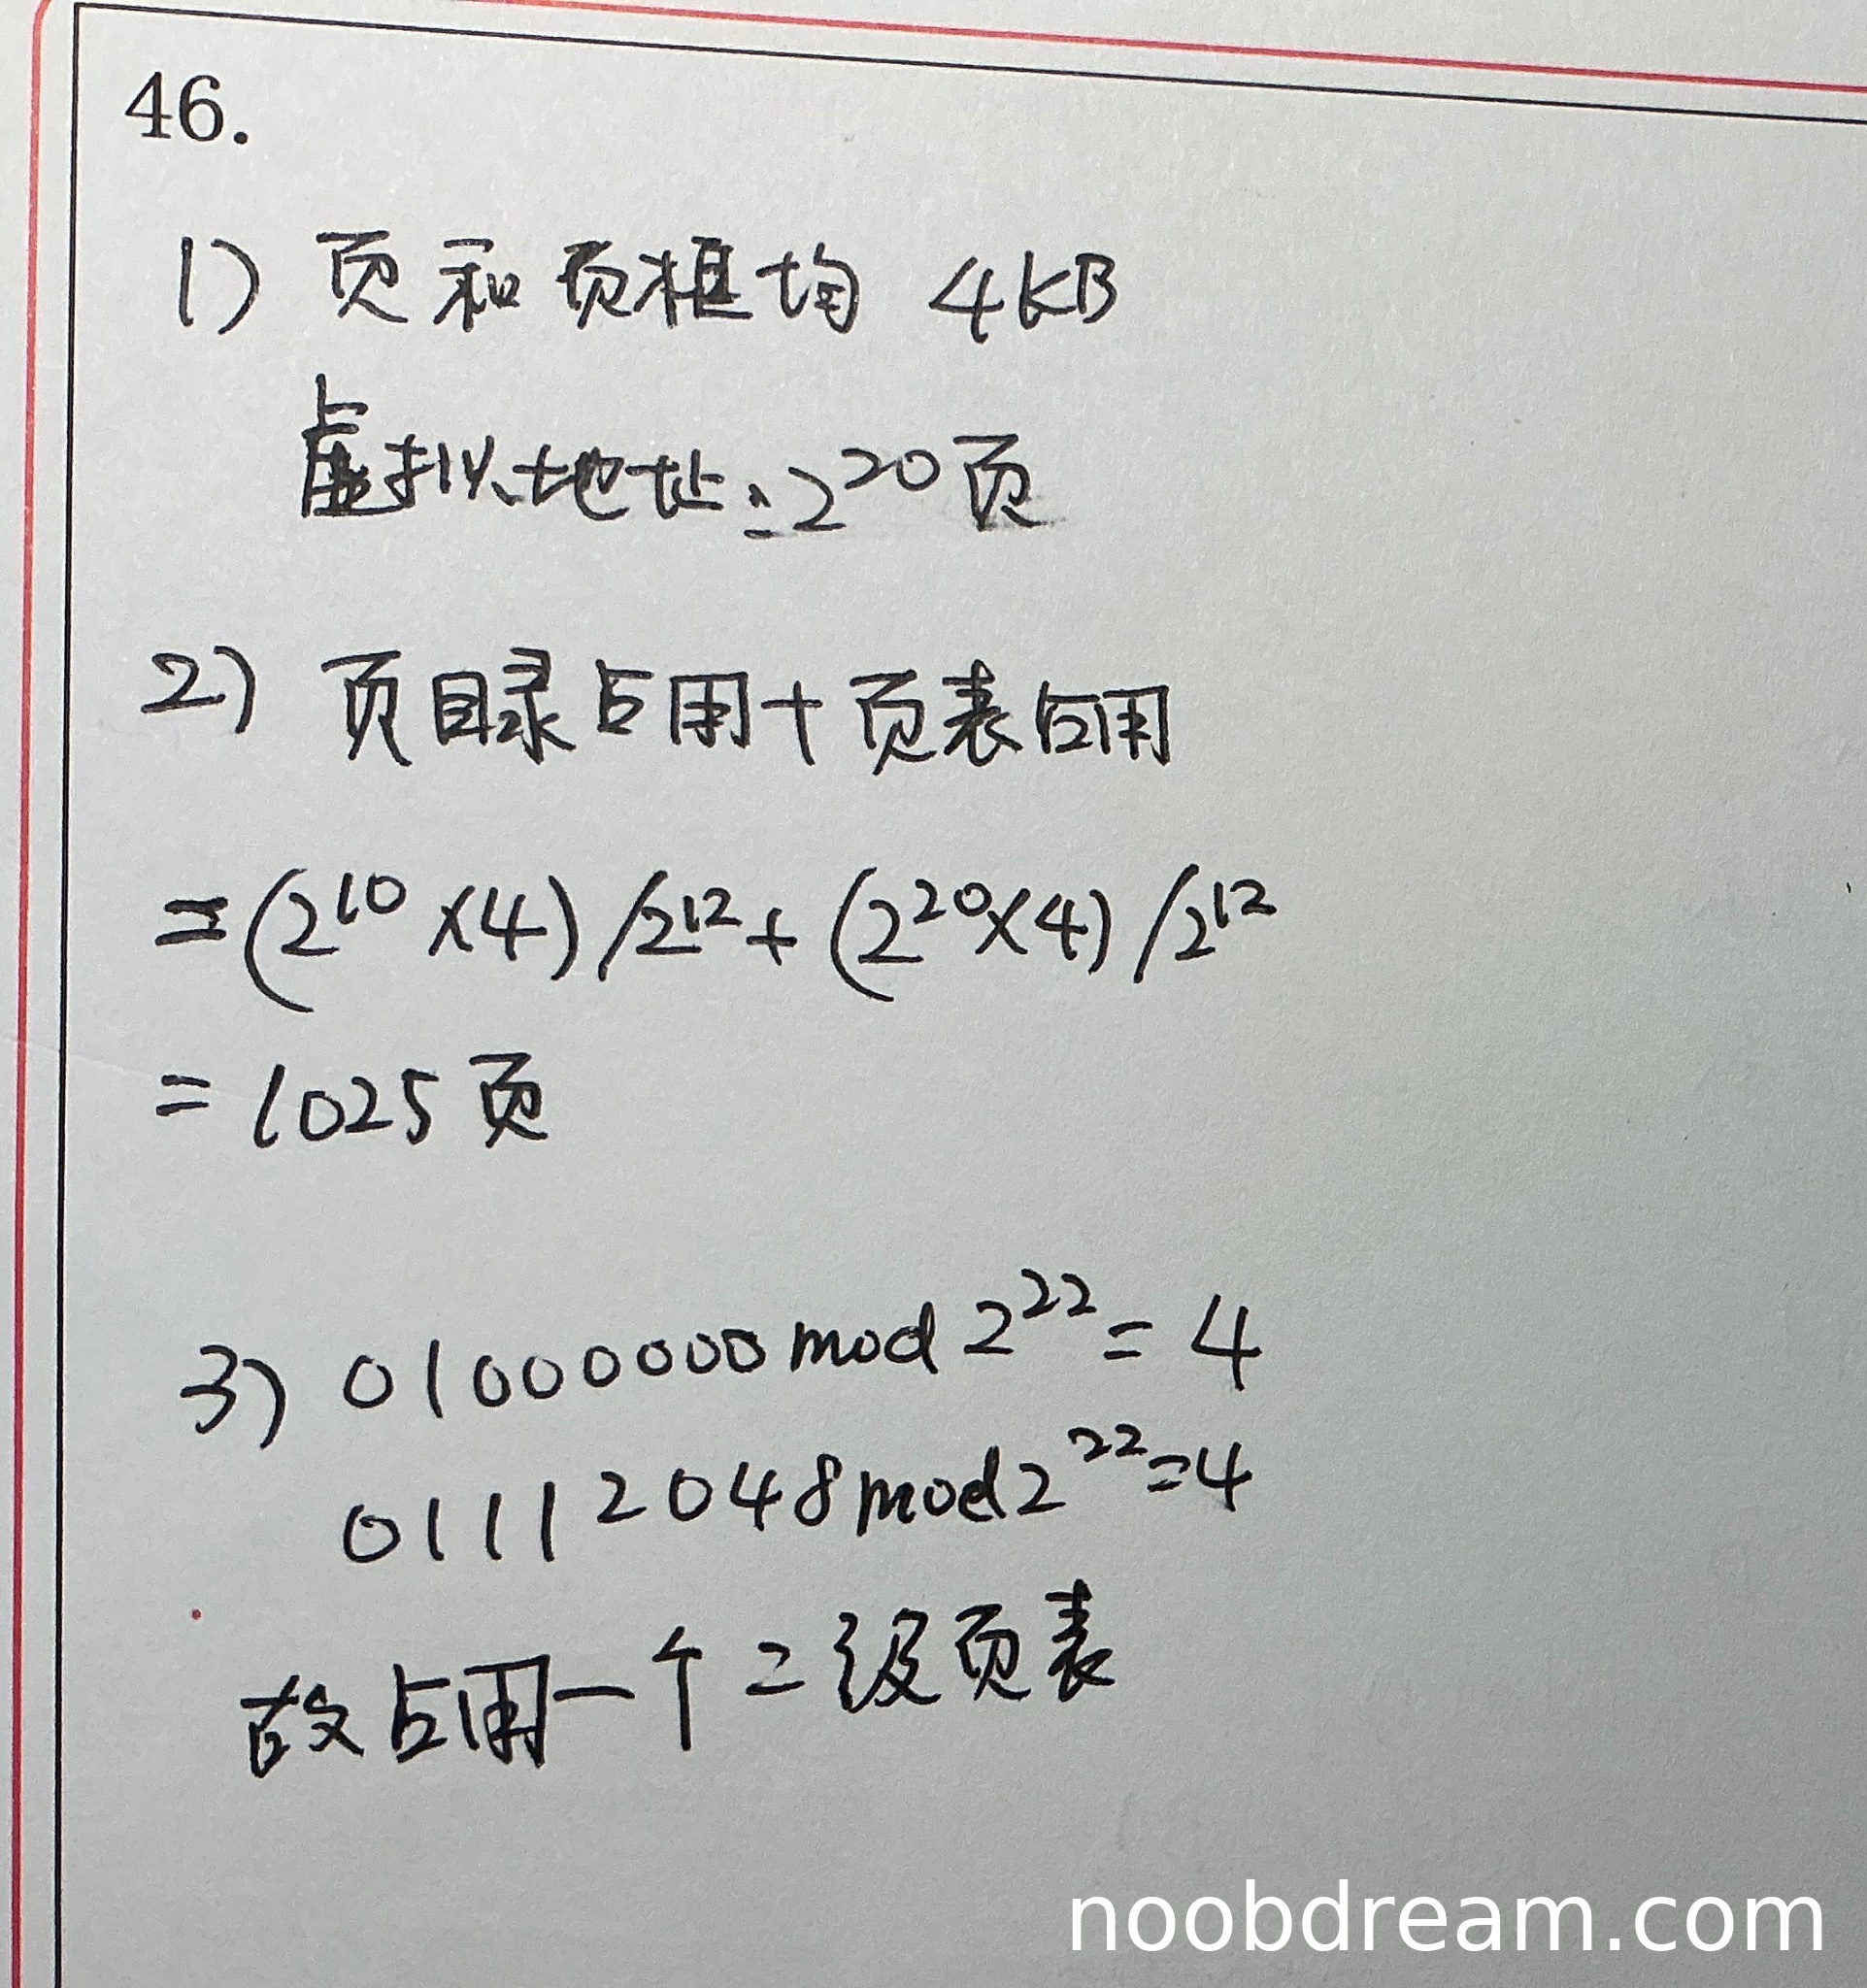 46.
1) 页和页框均 4KB
虚拟地址:2^20页
2) 页目录占用+页表占用
=(2^10×4)/2^12+(2^20×4)/2^12
=1025页
3) 01000000 mod 2^22=4
01112048 mod 2^22=4
故占用一个二级页表
noobdream.com